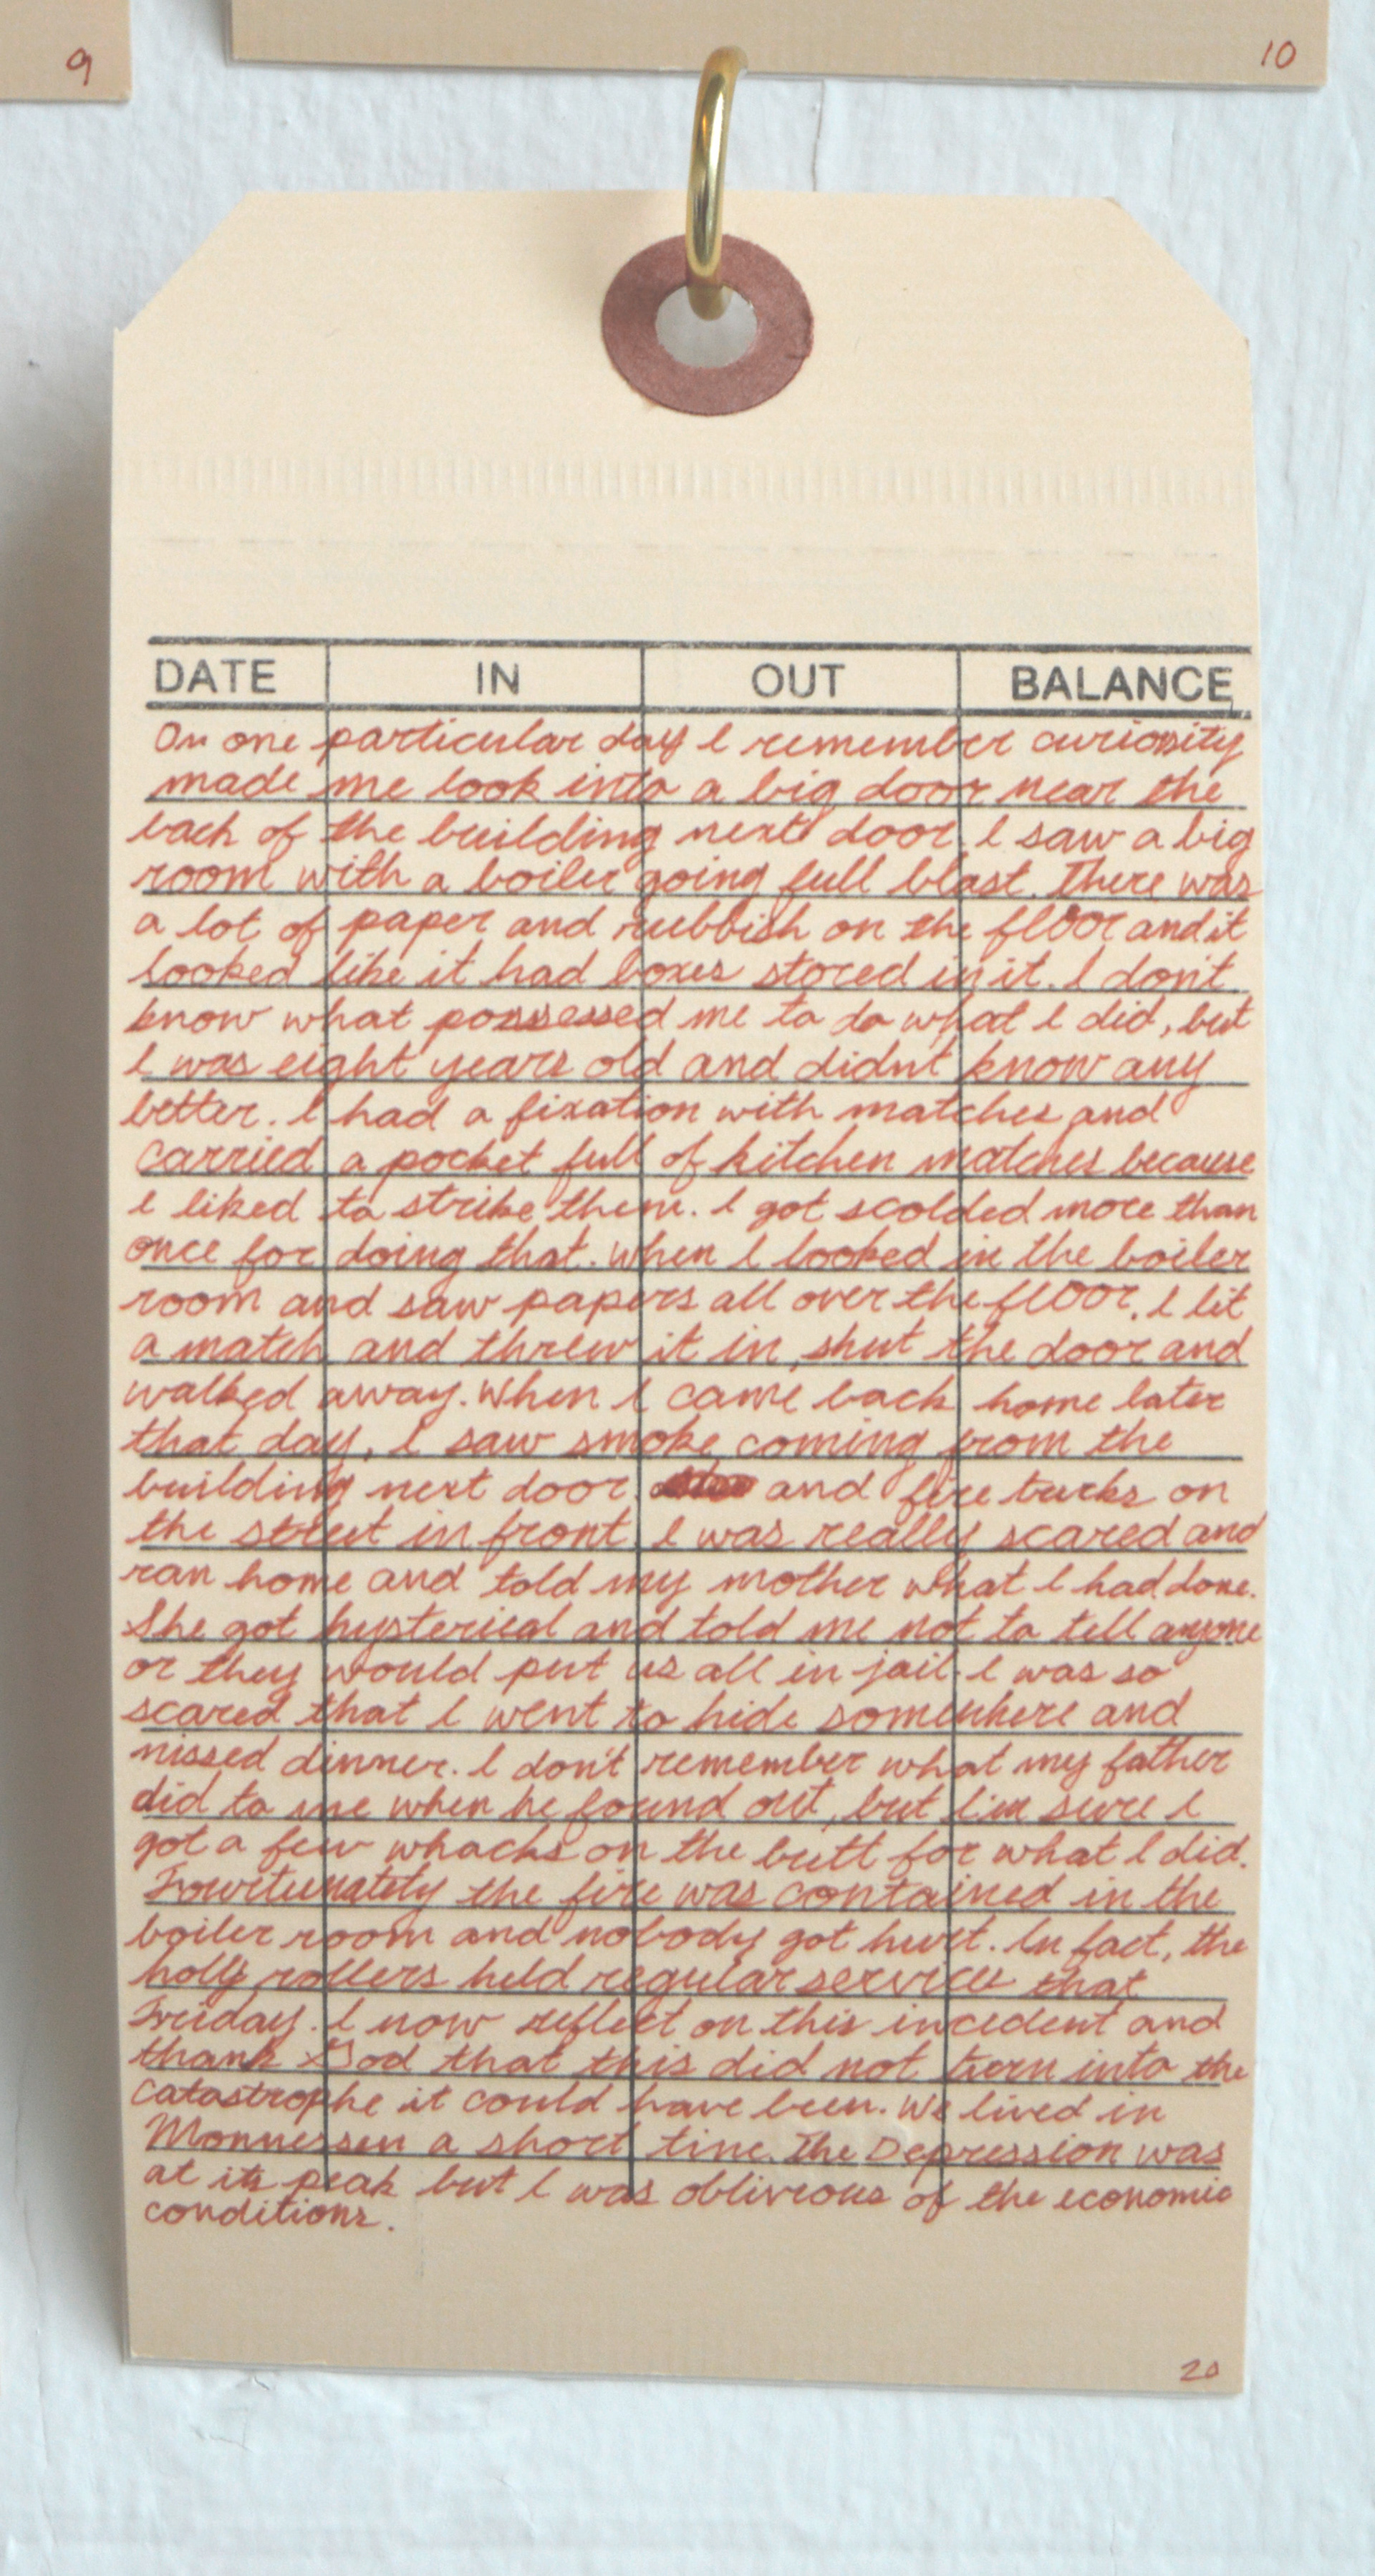 9
10
DATE IN OUT BALANCE
On one particular day I remember curiosity
made me look into a big door near the
back of the building next door. I saw a big
room with a boiler going full blast. There was
a lot of paper and rubbish on the floor and it
looked like it had boxes stored in it. I don't
know what possessed me to do what I did, but
I was eight years old and didnt know any
better. I had a fixation with matches and
carried a pocket full of kitchen matches because
I liked to strike them. I got scolded more than
once for doing that. When I looked in the boiler
room and saw papers all over the floor, I lit
a match and threw it in, shut the door and
walked away. When I came back home later
that day, I saw smoke coming from the
building next door. and fire trucks on
the street in front. I was really scared and
ran home and told my mother what I had done.
She got hysterical and told me not to tell anyone
or they would put us all in jail. I was so
scared that I went to hide somewhere and
missed dinner. I don't remember what my father
did to me when he found out, but I'm sure I
got a few whacks on the butt for what I did.
Fourtunately the fire was contained in the
boiler room and nobody got hurt. In fact, the
holly rollers held regular services that
Friday. I now reflect on this incedent and
thank God that this did not turn into the
catastrophe it could have been. We lived in
Monnessen a short time. The Depression was
at its peak but I was oblivious of the economic
conditions.
20